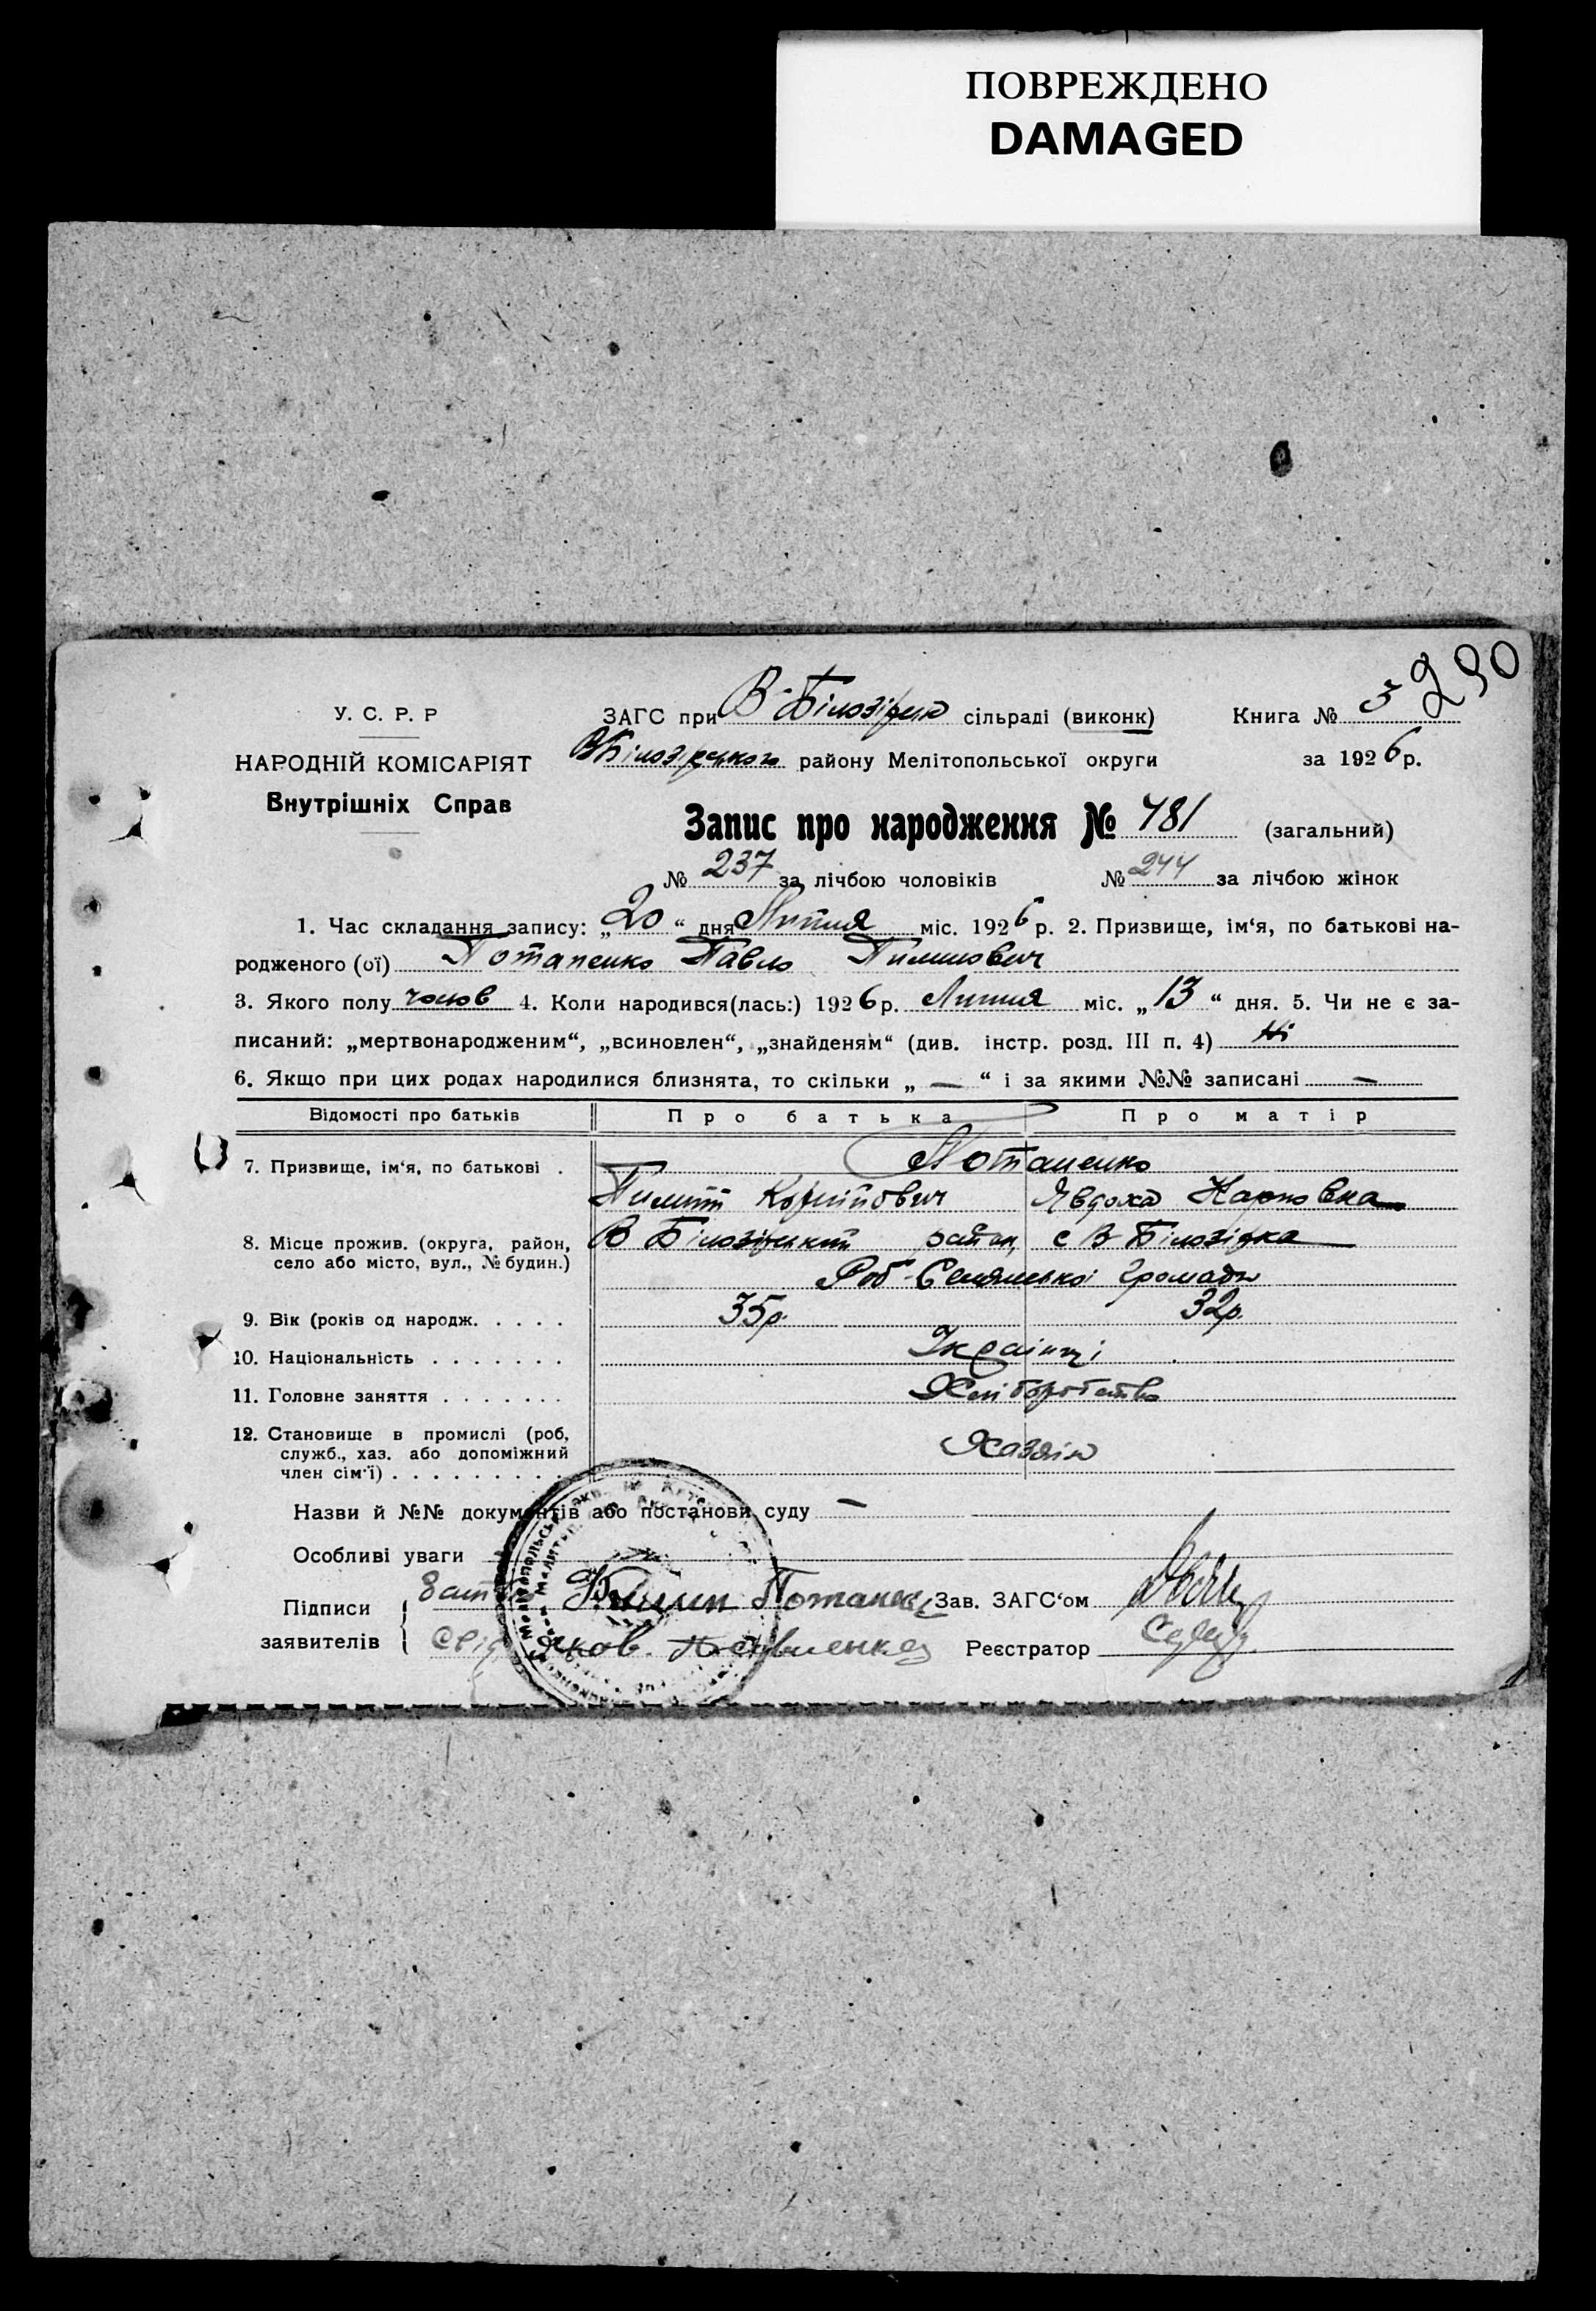 ПОВРЕЖДЕНО
DAMAGED
290
У. С. Р. Р
НАРОДНІЙ КОМІСАРІЯТ
Внутрішніх Справ
ЗАГС при В-Білозірськ сільраді (виконк) Книга № 3
ВБілозірського району Мелітопольської округи за 1926 р.
Запис про народження № 481 (загальний)
№ 237 за лічбою чоловіків № 244 за лічбою жінок
1. Час складання запису: „20“ дня Липня міс. 1926 р. 2. Призвище, ім‘я, по батькові на-
родженого (ої) Потапенко Павло Пилипович
3. Якого полу чолов 4. Коли народився(лась:) 1926 р. Липня міс. „13“ дня. 5. Чи не є за-
писаний: „мертвонародженим“, „всиновлен“, „знайденям“ (див. інстр. розд. III п. 4) Ні
6. Якщо при цих родах народилися близнята, то скільки „ — “ і за якими №№ записані —
Відомості про батьків Про батька Про матір
7. Призвище, ім‘я, по батькові . Потапенко
Пилип Корнійович Явдоха Карповна
8. Місце прожив. (округа, район, село або місто, вул., № будин.) В Білозірський район, с В Білозірка
Роб-Селянської громади
9. Вік (років од народж. . . . . 35р. 32р.
10. Національність . . . . . . . Українці
11. Головне заняття . . . . . . . Хліборобство
12. Становище в промислі (роб, служб., хаз. або допоміжний член сім‘ї) . . . . . . . . . Хазяїн
Назви й №№ документів або постанови суду —
Особливі уваги
Підписи заявителів Пилип Потапенк Зав. ЗАГС‘ом
Свід Яков Реєстратор